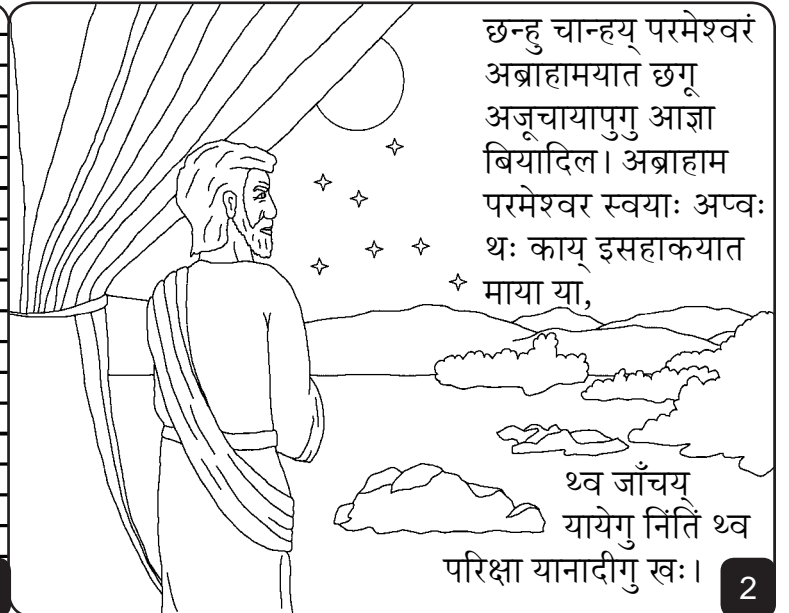 छन्हु चान्हय् परमेश्वरं
अब्राहामयात छगू
अजूचायापुगु आज्ञा
बियादिल। अब्राहाम
परमेश्वर स्वयाः अप्वः
थः काय् इसहाकयात
माया या,
थ्व जाँचय्
यायेगु निंतिं थ्व
परिक्षा यानादीगु खः।
2